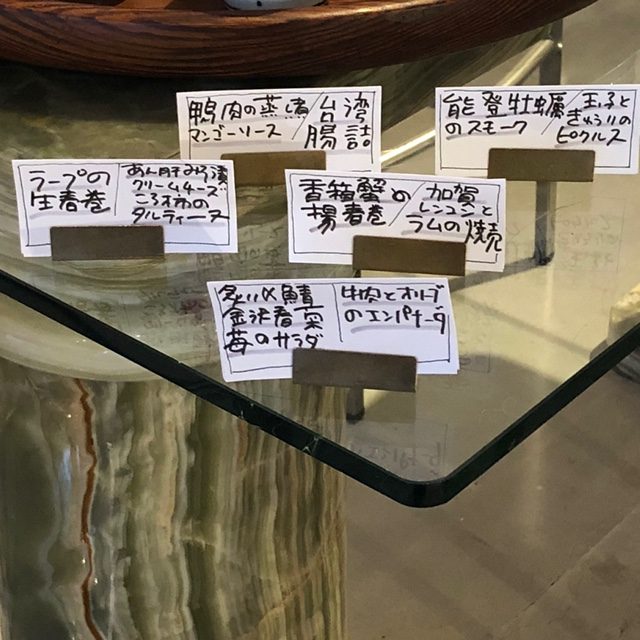 鴨肉の蒸し煮
マンゴーソース
台湾
腸詰
能登牡蠣
のスモーク
玉子と
きゅうりの
ピクルス
ラープの
生春巻
あん肝みそ漬
クリームチーズ
ころ柿の
タルティーヌ
香箱蟹の
揚春巻
加賀
レンコンと
ラムの焼売
炙り〆鯖
金沢春菊
苺のサラダ
牛肉とオリーブ
のエンパナーダ